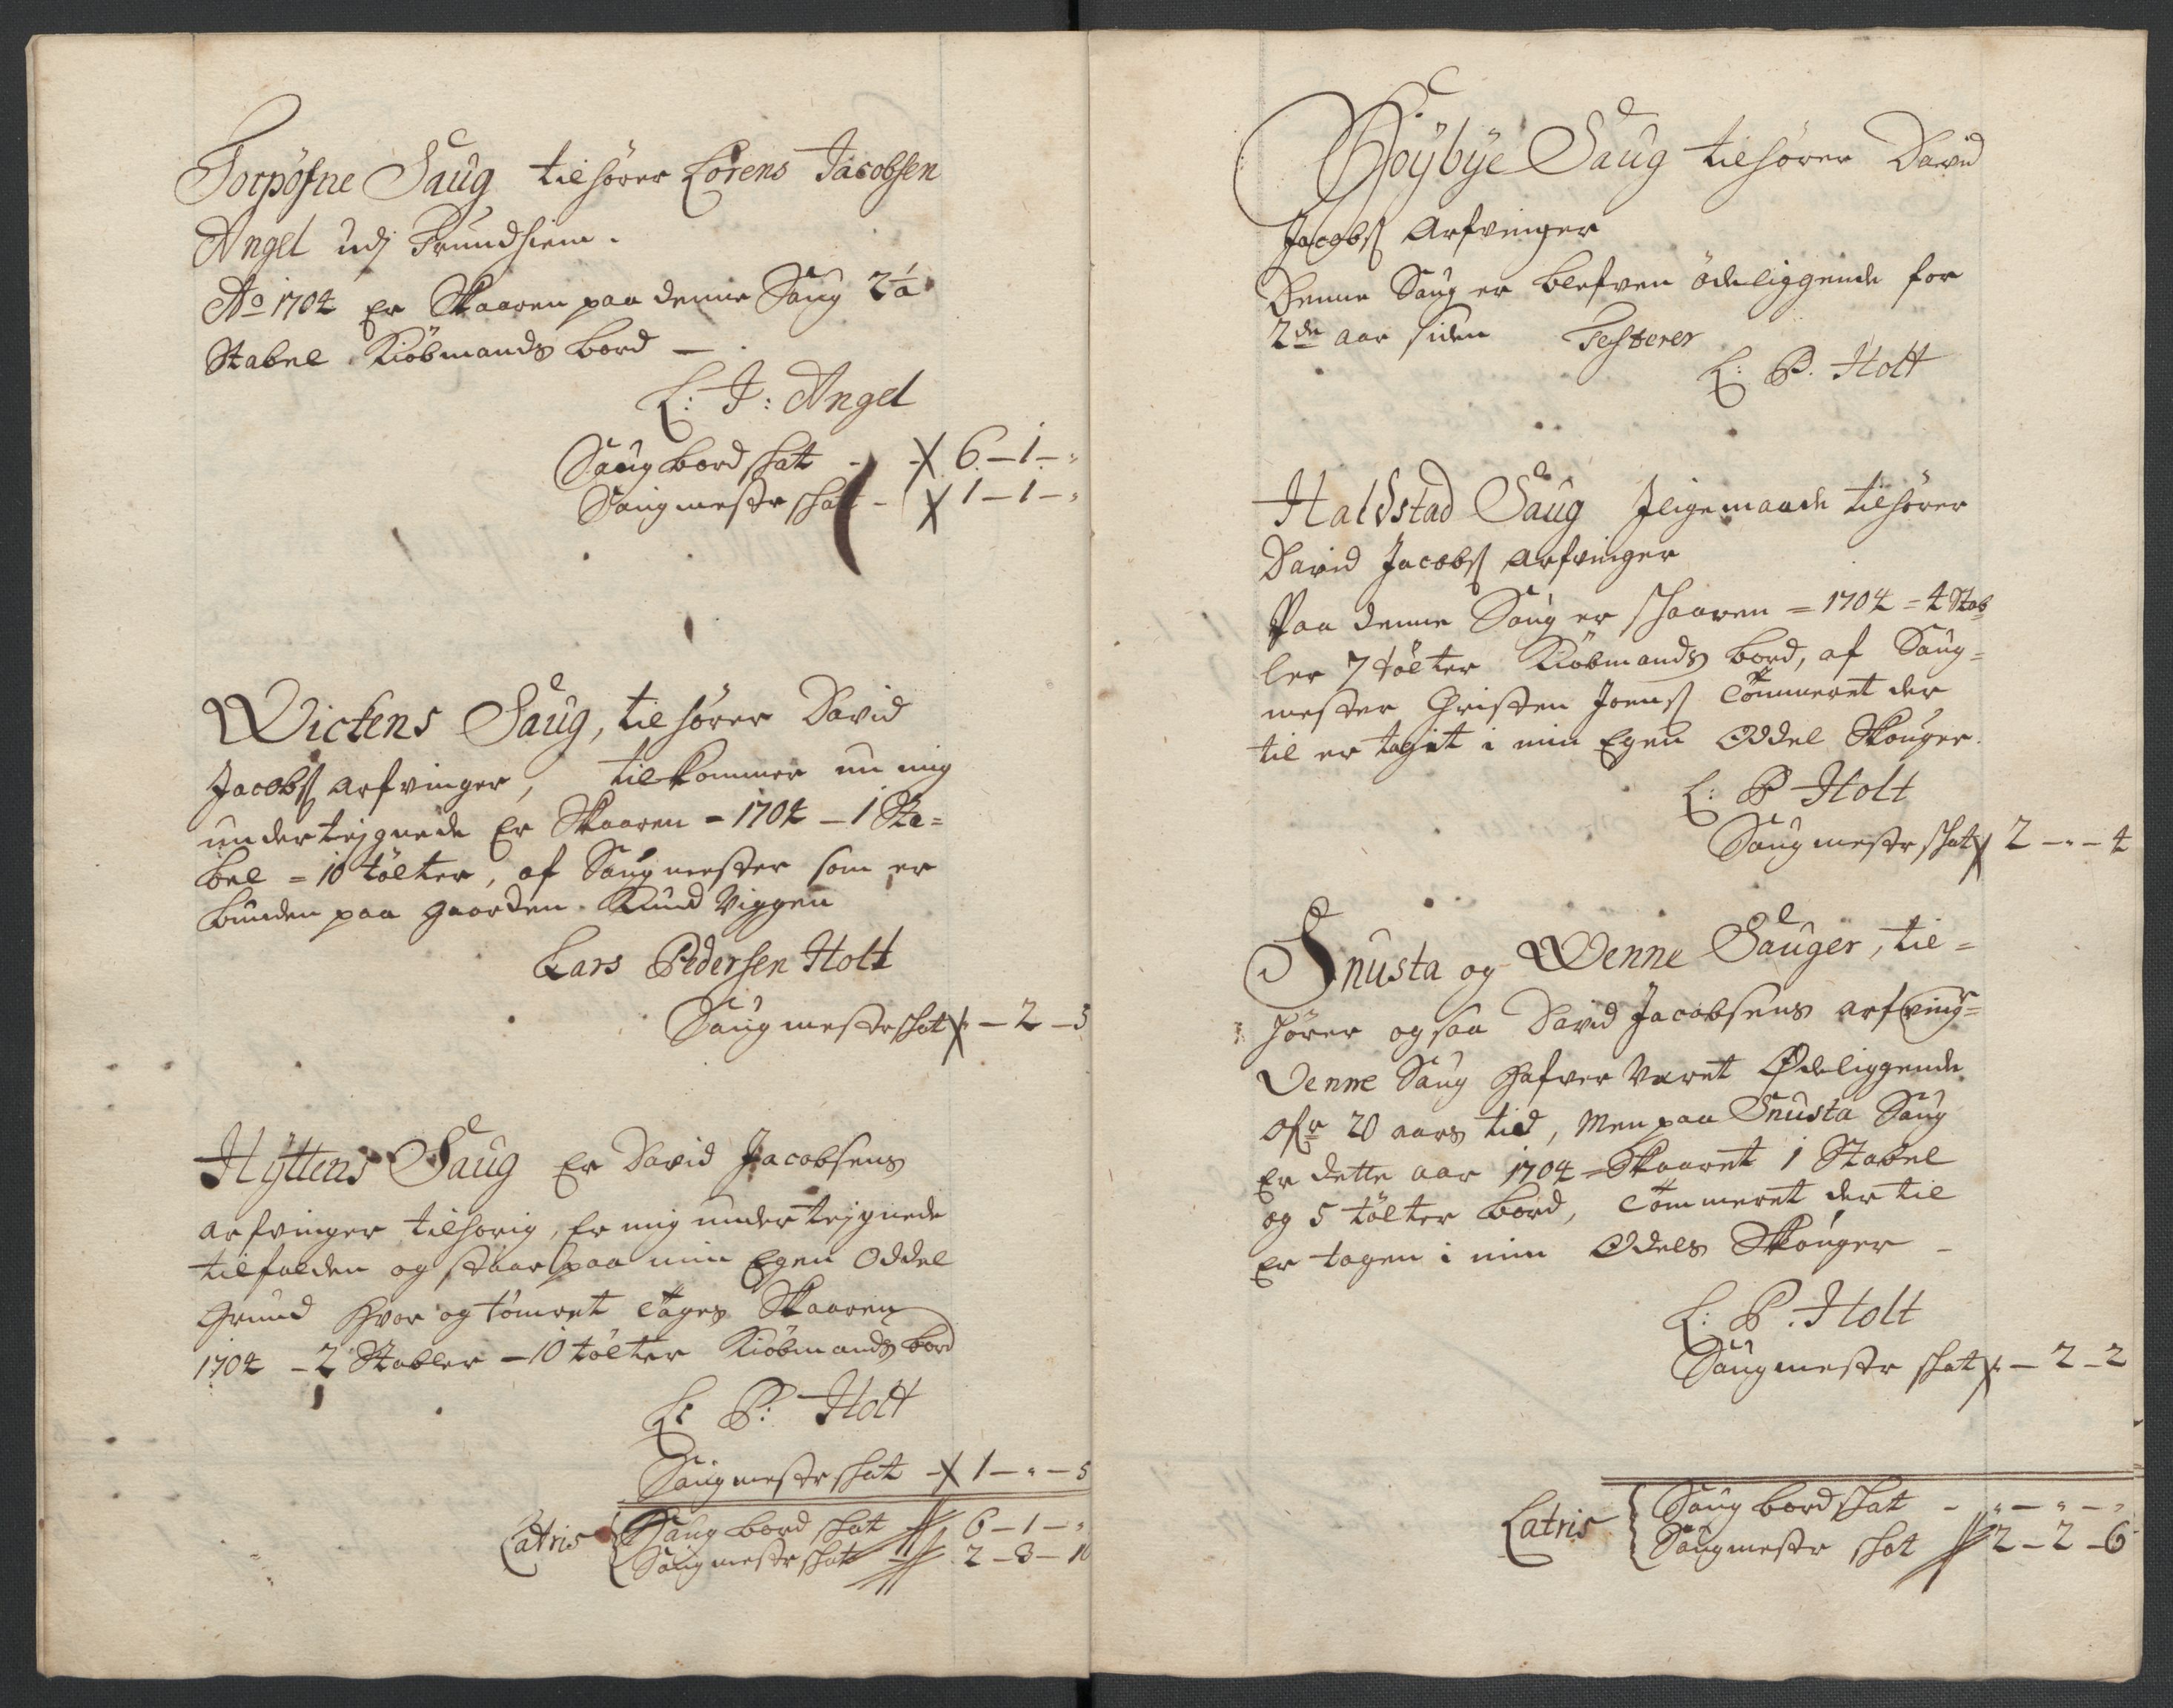 Torpøfne Saug tilhører Lorens Jacobsen
Angel udj Trundhiem.
Ao 1704 Er Skaaren paa denne Saug 2½
Stabel Kiöbmands bord —
L: J: Angel
Saug bord skat - - 6 - 1 - "
Saugmestr skat - 1 - 1 - "
Wictens Saug, tilhører David
Jacobs Arfvinger, tilkommer nu mig
undertejgnede Er Skaaren - 1704 - 1 Sta=
bel = 10 tölter, af Saugmester som er
bunden paa gaarden. Knud Viggen
Lars Pedersen Holt
Saugmestr skat " - 2 - 5
Hÿttens Saug Er David Jacobsens
arfvinger tilhorig, Er mig undertejgnede
tilfalden og staar paa min Egen Oddel
Grund hvor og tömret tages Skaaren
1704 - 2 Stabler - 10 tölter Kiöbmands bord
L: P: Holt
Saugmestr skat - 1 - " - 5
Latris Saug bord skat 6 - 1 - "
Saugmestr skat 2 - 3 - 10
Höÿbÿe Saug tilhører David
Jacobs Arfvinger
Denne Saug er blefven ödeliggende for
2de aar siden Testerer
L: P. Holt
Haldstad Saug Jligemaade tilhører
David Jacobs Arfvinger
Paa denne Saug er skaaren = 1704 = 4 Stab
ler 7 tölter Kiöbmands bord, af Saug=
mester Christen Joens Tömmeret der
til er tagit i min Egen Oddel Skouger.
L: P Holt
Saugmestr skat 2 - " - 4
Snusta og Wenne Sauger, til=
hører og saa David Jacobsens arfving=
Venne Saug hafver Været Ødeliggende
ofr 20 aars tid, Men paa Snusta Saug
Er dette aar 1704 = Skaaret 1 Stabel
og 5 tölter bord, Tömmeret der til
Er tagen i min Odels Skouger -
L: P. Holt
Saugmestr skat " - 2 - 2
Latris Saug bord skat - " - " - "
Saugmestr skat 2 - 2 - 6